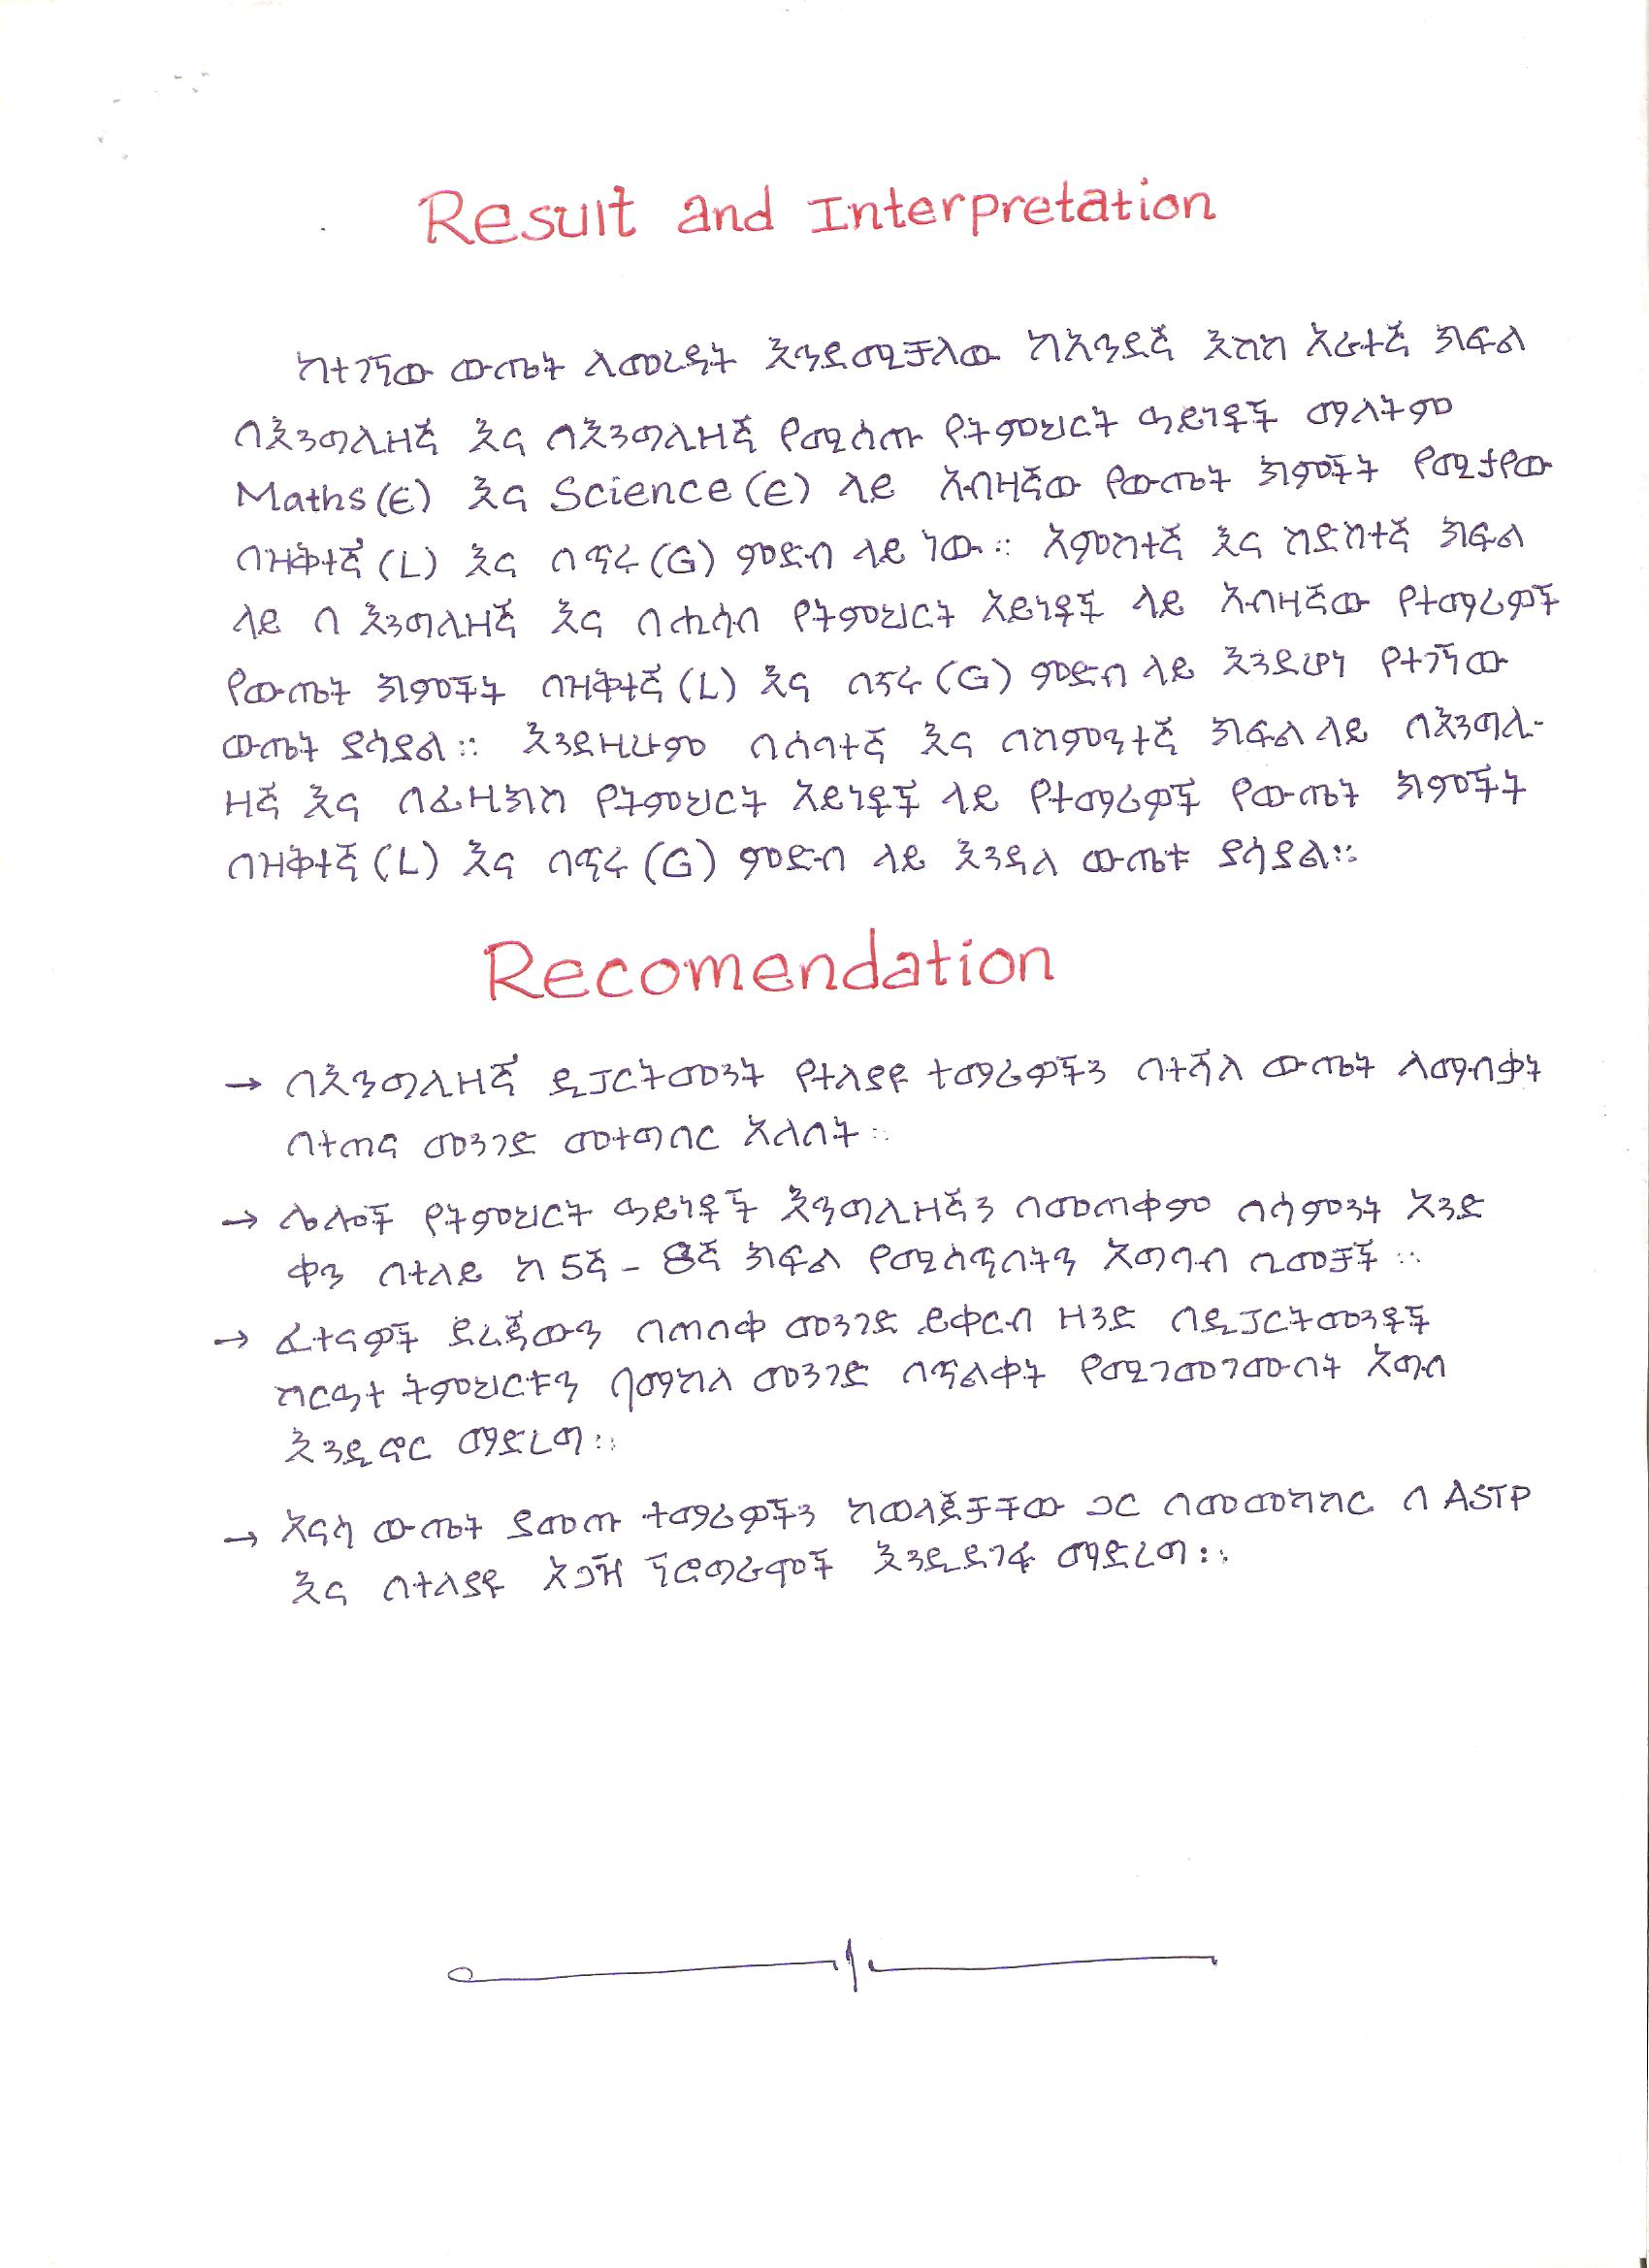 Result and Interpretation
ከተገኘው ውጤት ለመረዳት እንደሚቻለው ከአንደኛ እስከ አራተኛ ክፍል
በእንግሊዘኛ እና በእንግሊዘኛ የሚሰጡ የትምህርት ዓይነዶች ማለትም
Maths (E) እና Science (E) ላይ አብዛኛው የውጤት ክምችት የሚታየው
በዝቅተኛ (L) እና በጥሩ (G) ምድብ ላይ ነው። አምስተኛ እና ስድስተኛ ክፍል
ላይ በ እንግሊዘኛ እና በሒሳብ የትምህርት አይነዶች ላይ አብዛኛው የተማሪዎች
የውጤት ክምችት በዝቅተኛ (L) እና በጥሩ (G) ምድብ ላይ እንደሆነ የተገኘው
ውጤት ያሳያል። እንደዚሁም በሰባተኛ እና በስምንተኛ ክፍል ላይ በእንግሊ-
ዘኛ እና በፊዚክስ የትምህርት አይነዶች ላይ የተማሪዎች የውጤት ክምችት
በዝቅተኛ (L) እና በጥሩ (G) ምድብ ላይ እንዳለ ውጤቱ ያሳያል።
Recomendation
→ በእንግሊዘኛ ዲፓርትመንት የተለያዩ ተማሪዎችን በተሻለ ውጤት ለማብቃት
በተጠና መንገድ መተግበር አለበት።
→ ሌሎች የትምህርት ዓይነዶች እንግሊዘኛን በመጠቀም በሳምንት አንድ
ቀን በተለይ ከ 5ኛ - 8ኛ ክፍል የሚሰጥበትን አግባብ ቢመቻች ።
→ ፈተናዎች ደረጃውን በጠበቀ መንገድ ይቀርብ ዘንድ በዲፓርትመንዶች
ስርዓተ ትምህርቱን ባማከለ መንገድ በጥልቀት የሚገመገሙበት አግባብ
እንዲኖር ማድረግ።
→ አናሳ ውጤት ያመጡ ተማሪዎችን ከወላጆቻቸው ጋር በመመካከር በ ASTP
እና በተለያዩ አጋዥ ፕሮግራሞች እንዲደገፉ ማድረግ።